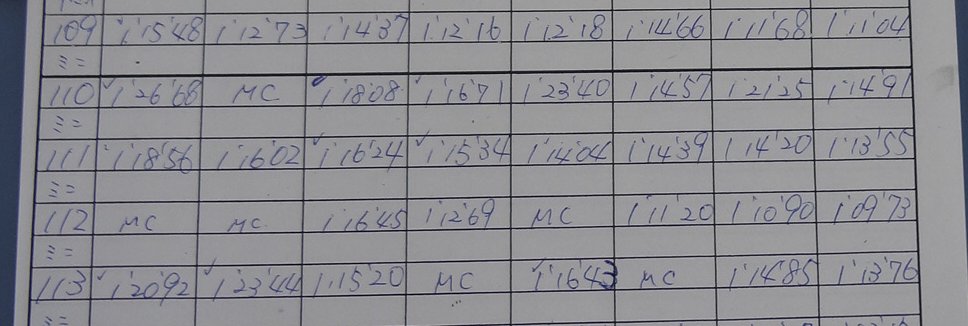 109 1'15'48 1'12'73 1'14'37 1'12'16 1'12'18 1'14'66 1'11'68 1'11'04
ミニ
110 1'26'68 MC 1'18'08 1'16'71 1'23'40 1'14'57 1'21'25 1'14'91
ミニ
111 1'18'56 1'16'02 1'16'24 1'15'34 1'14'04 1'14'39 1'14'20 1'13'55
ミニ
112 MC MC 1'16'45 1'12'69 MC 1'11'20 1'10'90 1'09'73
ミニ
113 1'20'92 1'23'44 1'15'20 MC 1'16'43 MC 1'14'85 1'13'76
ミニ